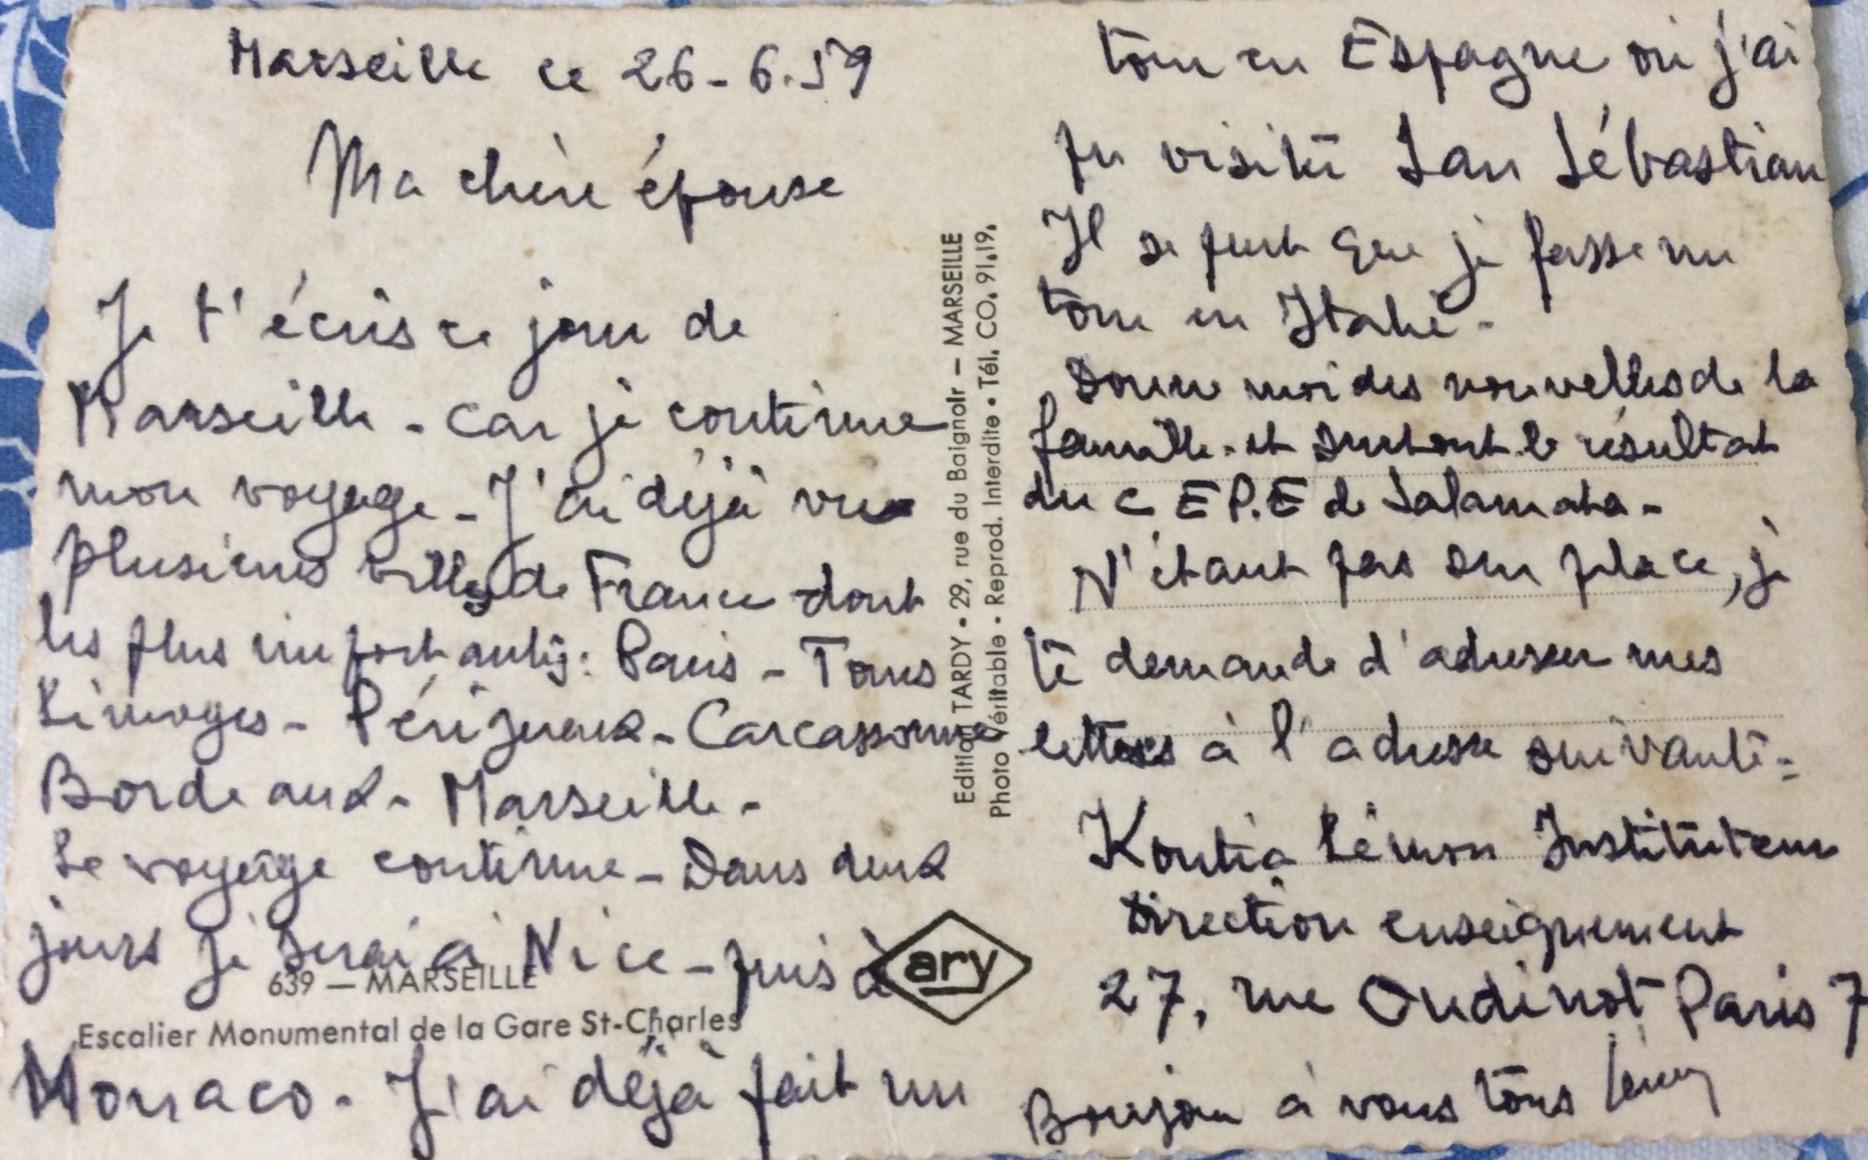 Marseille ce 26-6.59
Ma chère épouse
Je t'écris ce jour de
Marseille - car je continue
mon voyage - J'ai déjà vu
plusieurs villes de France dont
les plus importantes: Paris - Tours
Limoges - Périgueux - Carcassonne
Bordeaux - Marseille -
Le voyage continue - Dans deux
jours je serai à Nice - puis à
Monaco - J'ai déjà fait un
639 — MARSEILLE
Escalier Monumental de la Gare St-Charles
Edition TARDY • 29, rue du Baignoir — MARSEILLE
Photo Véritable • Reprod. Interdite • Tél. CO. 91.19.
ary
tour en Espagne où j'ai
pu visiter San Sébastian
Il se peut que je fasse un
tour en Italie -
Donne moi des nouvelles de la
famille - et surtout le résultat
du C E P.E de Salamata -
N'étant pas sur place, je
te demande d'adresser mes
lettres à l'adresse suivante =
Kontia Lémon Instituteur
Direction enseignement
27, rue Oudinot Paris 7
Bonjour à vous tous